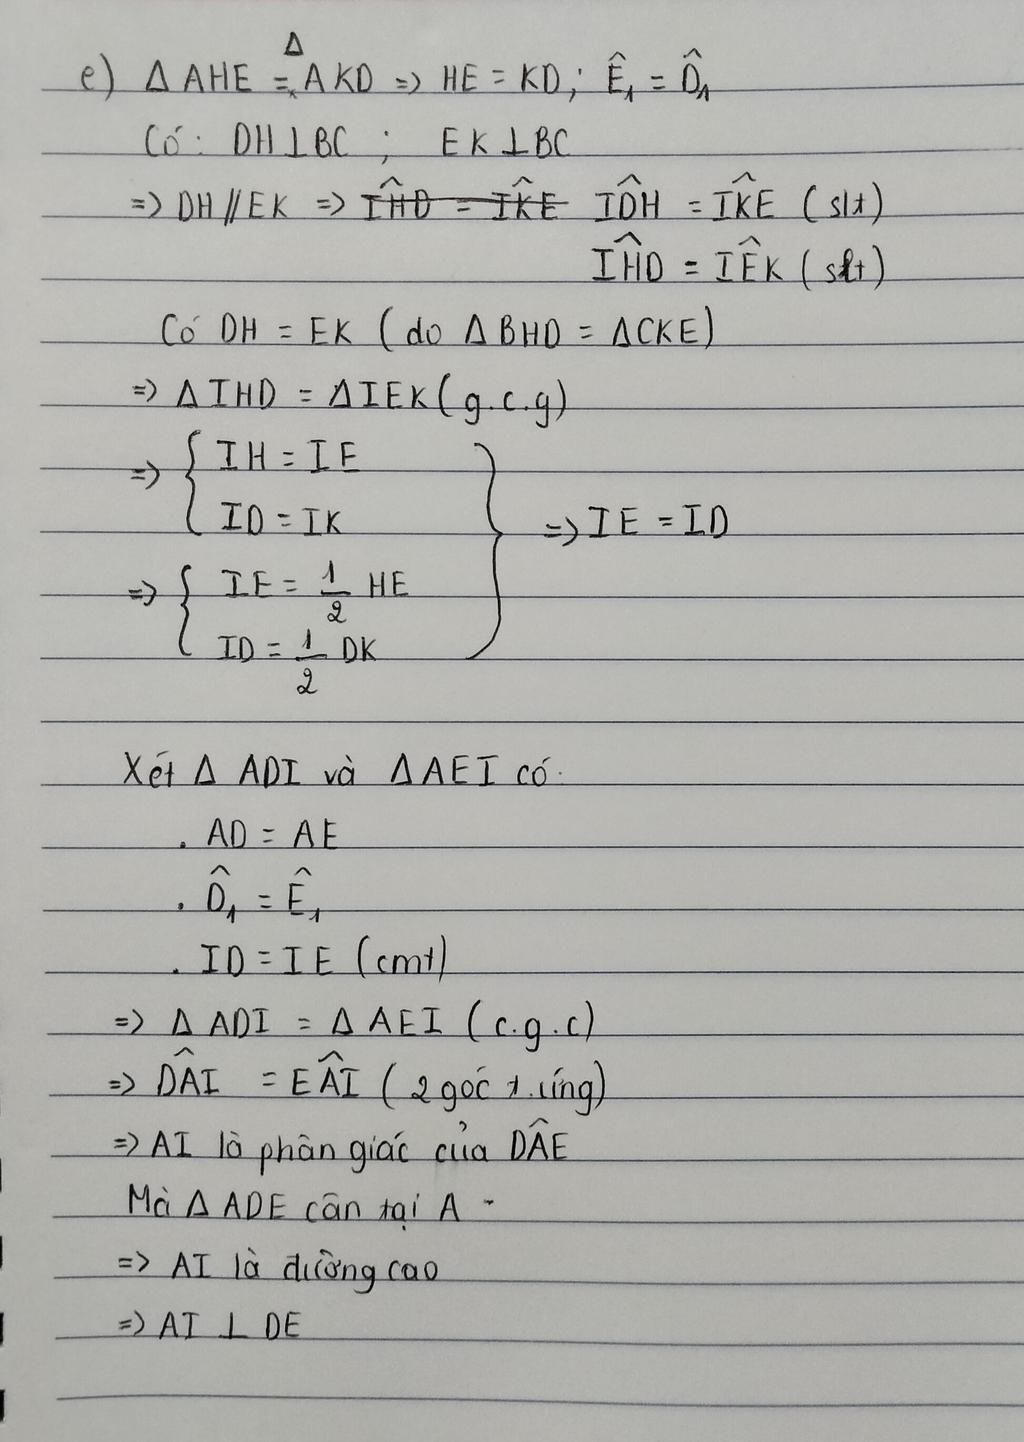 e) Δ AHE = Δ AKD => HE = KD; Ê₁ = D̂₁
Có: DH⊥BC ; EK⊥BC
=> DH // EK => IĤD = IK̂E ID̂H = IK̂E (slt)
IĤD = IÊK (slt)
Có DH = EK (do ΔBHD = ΔCKE)
=> ΔIHD = ΔIEK (g.c.g)
=> { IH = IE
ID = IK } => IE = ID
=> { IE = 1/2 HE
ID = 1/2 DK
Xét Δ ADI và ΔAEI có:
. AD = AE
. D̂₁ = Ê₁
. ID = IE (cmt)
=> Δ ADI = Δ AEI (c.g.c)
=> DÂI = EÂI (2 góc t.ứng)
=> AI là phân giác của DÂE
Mà Δ ADE cân tại A -
=> AI là đường cao
=> AI ⊥ DE